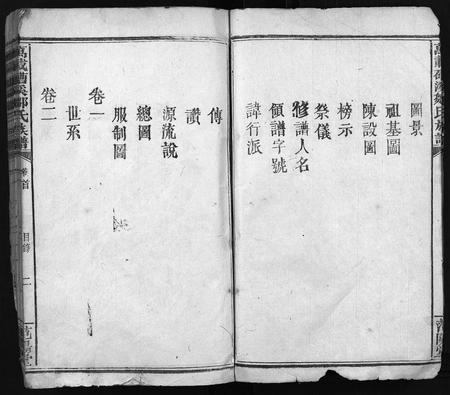 圖景
祖基圖
陳設圖
榜示
祭儀
修譜人名
領譜字號
諱行派
傳
讚
源流說
總圖
服制圖
卷一
世系
卷二
萬載 氏族譜
卷首
目錄
二